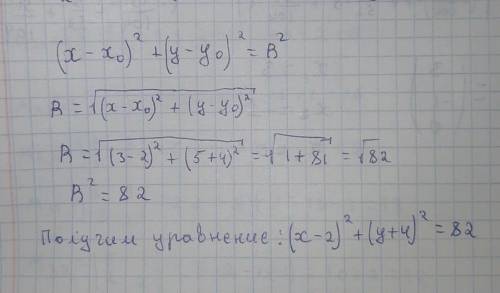 (x - x₀)² + (y - y₀)² = B²
B = √((x-x₀)² + (y-y₀)²)
B = √((3-2)² + (5+4)²) = √(1+81) = √82
B² = 82
Получим уравнение: (x-2)² + (y+4)² = 82